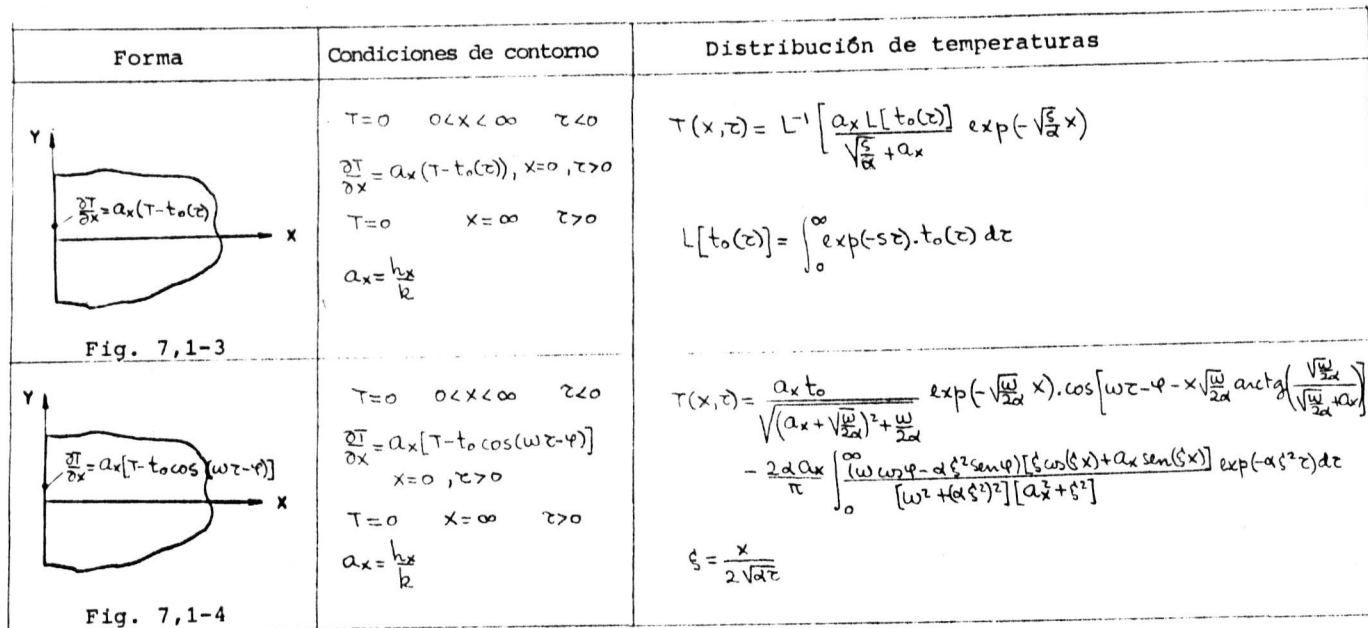 Forma
Condiciones de contorno
Distribución de temperaturas
Y
∂T/∂x = aₓ(T-t₀(τ)
X
Fig. 7,1-3
T=0 0<x<∞ τ<0
∂T/∂x = aₓ(T-t₀(τ)), x=0, τ>0
T=0 x=∞ τ>0
aₓ = hₓ/k
T(x,τ) = L⁻¹[ aₓ L[t₀(τ)] / (√(ς/α) + aₓ) exp(-√(ς/α) x)
L[t₀(τ)] = ∫₀^∞ exp(-sτ).t₀(τ) dτ
Y
∂T/∂x = aₓ[T-t₀ cos(ωτ-φ)]
X
Fig. 7,1-4
T=0 0<x<∞ τ<0
∂T/∂x = aₓ[T-t₀ cos(ωτ-φ)]
x=0, τ>0
T=0 x=∞ τ>0
aₓ = hₓ/k
T(x,τ) = aₓ t₀ / √((aₓ + √(ω/2α))² + ω/2α) exp(-√(ω/2α) x).cos[ωτ-φ-x√(ω/2α) arctg(√(ω/2α) / (√(ω/2α) + aₓ)]
- 2αaₓ/π ∫₀^∞ (ω cosφ - αξ² senφ)[ξ cos(ξx) + aₓ sen(ξx)] / [ω² + (αξ²)²][aₓ² + ξ²] exp(-αξ²τ)dτ
ξ = x / 2√(ατ)